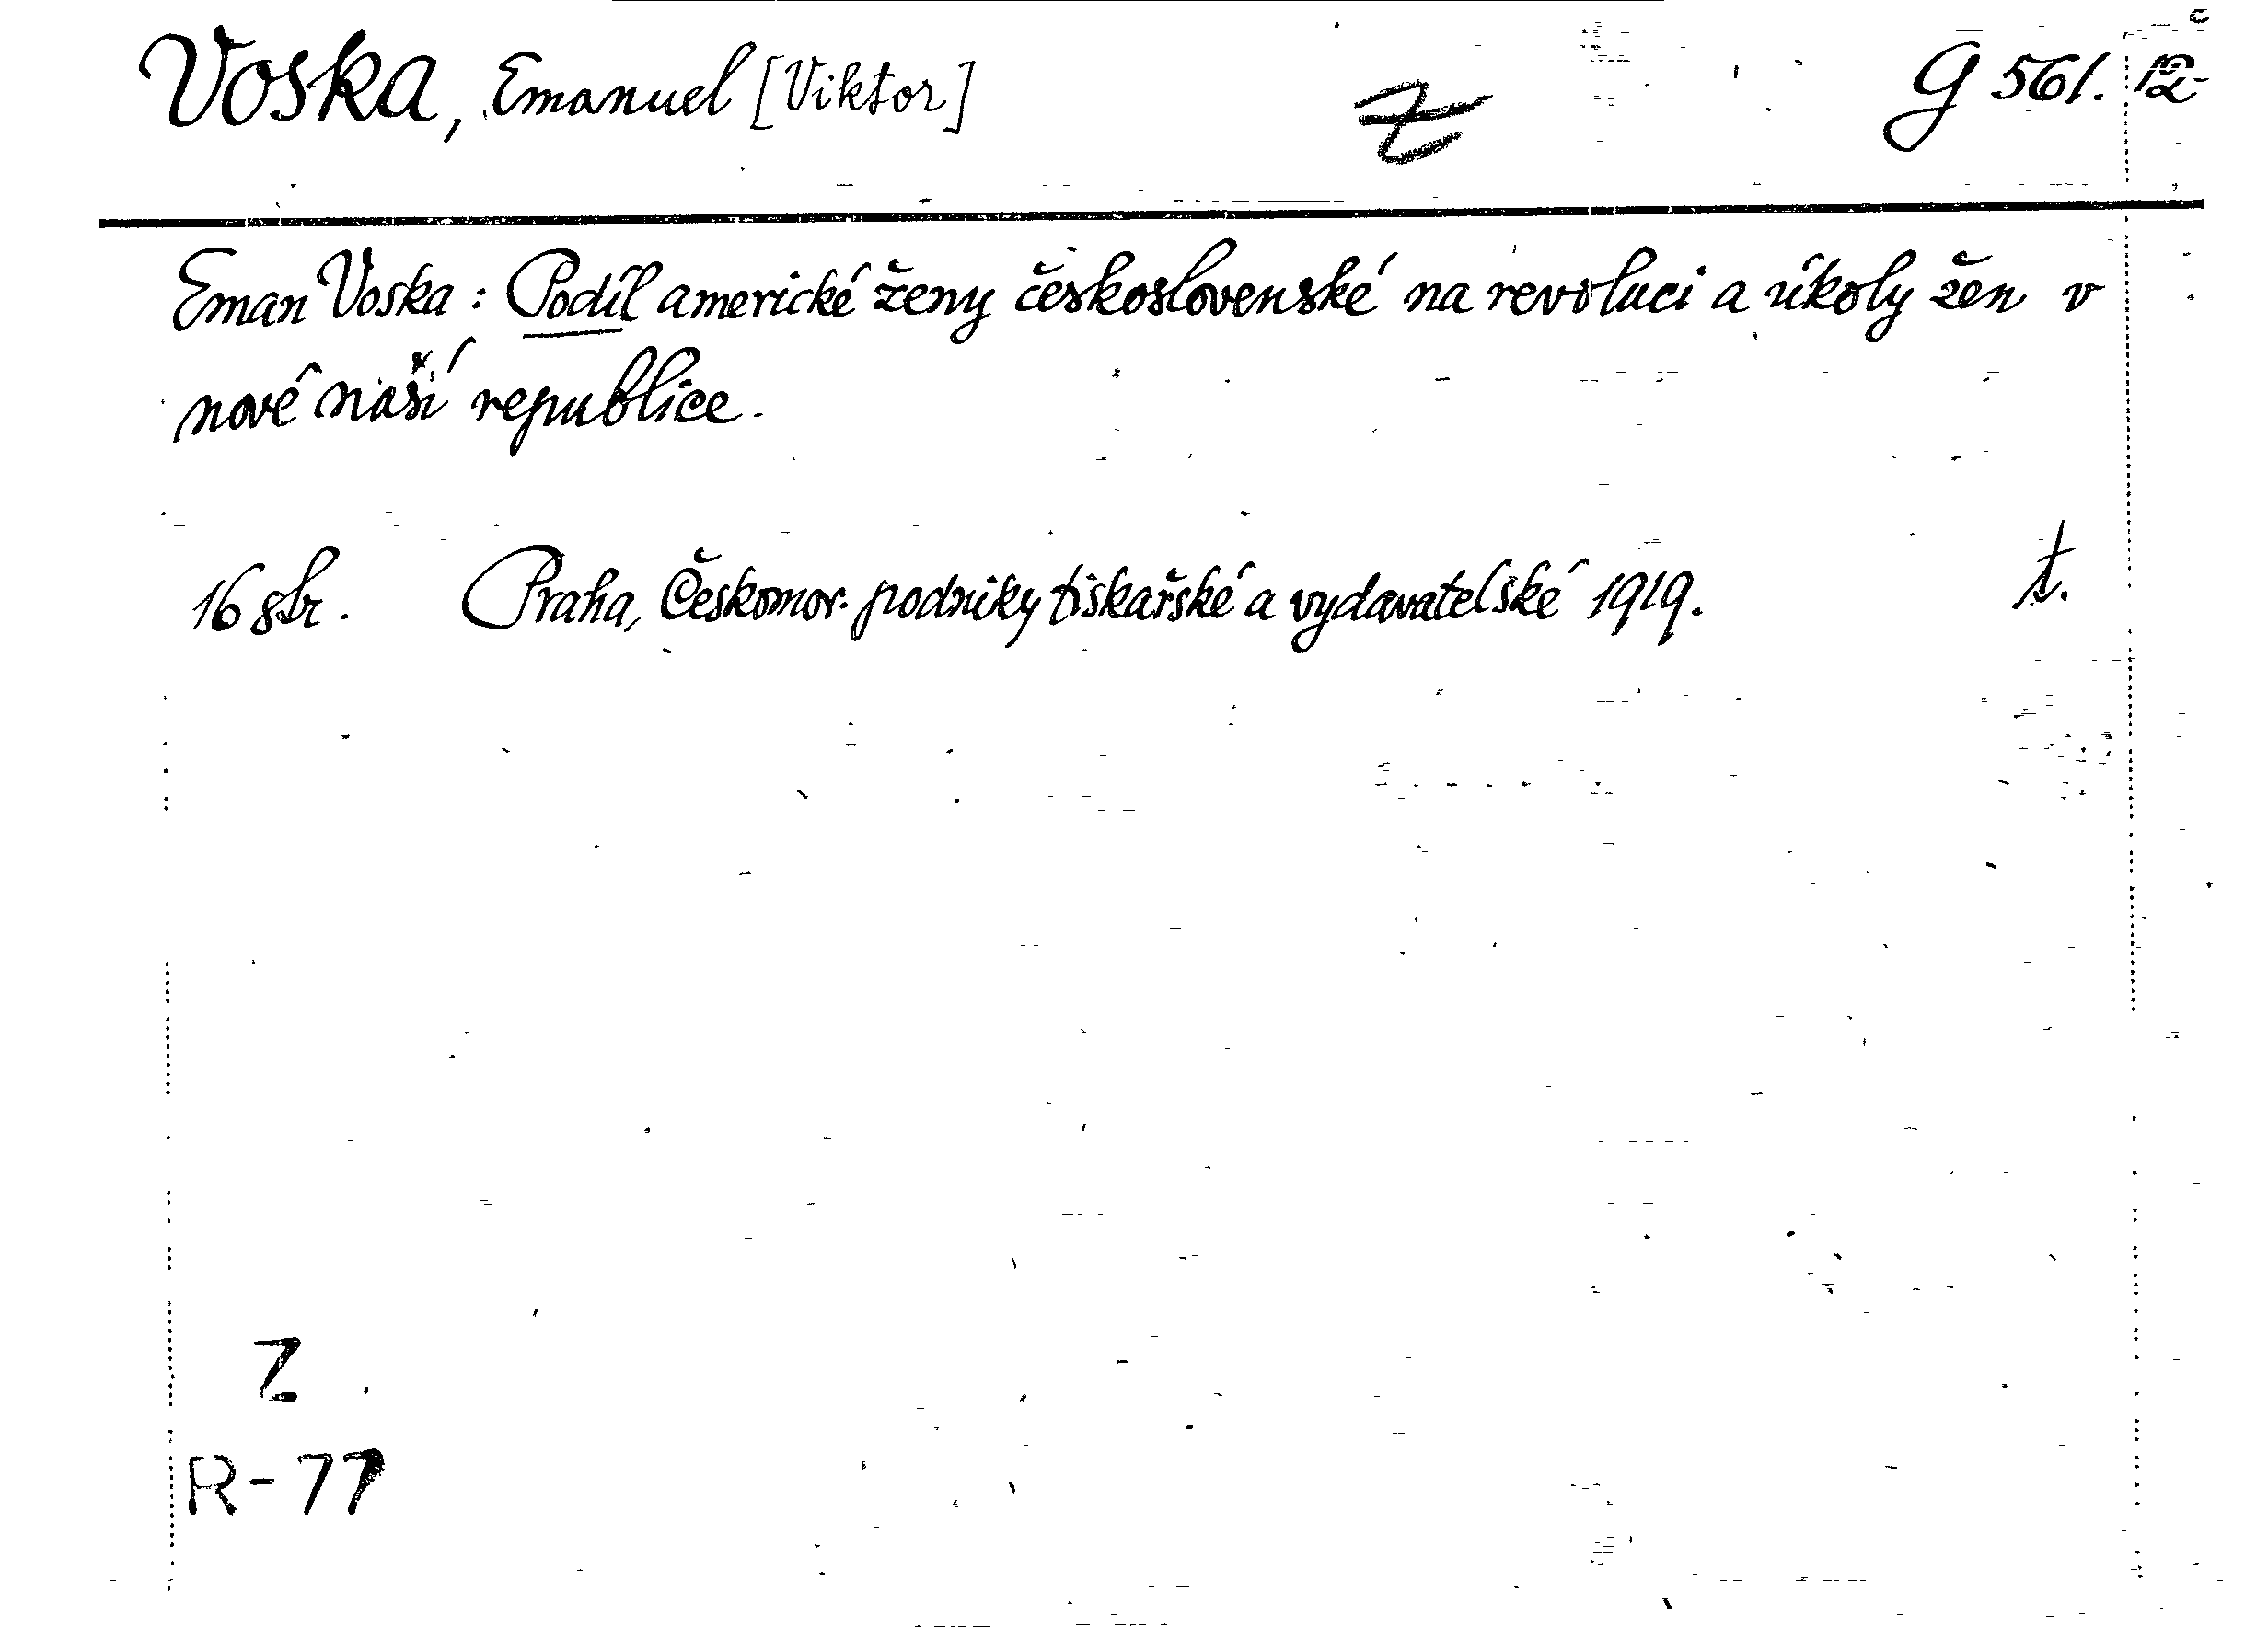 Voska, Emanuel [Viktor] Z G 561. 12
Eman Voska: Podíl americké ženy československé na revoluci a úkoly žen v
nové naší republice.
16 str. Praha, Českomor. podniky tiskařské a vydavatelské 1919. t.
Z
R-77